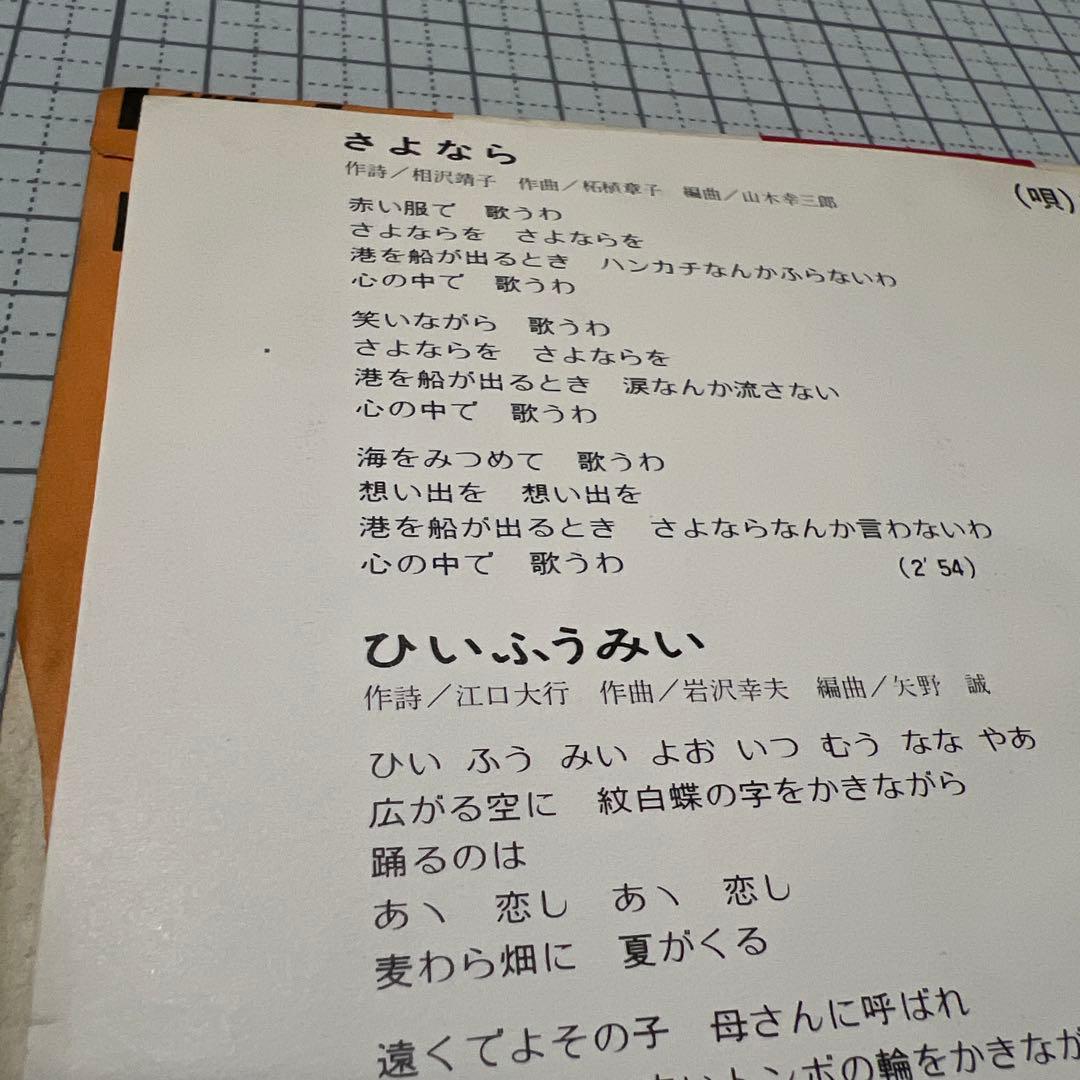 さよなら
作詩/相沢靖子 作曲/柘植章子 編曲/山木幸三郎
(唄)
赤い服で 歌うわ
さよならを さよならを
港を船が出るとき ハンカチなんかふらないわ
心の中で 歌うわ
笑いながら 歌うわ
さよならを さよならを
港を船が出るとき 涙なんか流さない
心の中で 歌うわ
海をみつめて 歌うわ
想い出を 想い出を
港を船が出るとき さよならなんか言わないわ
心の中で 歌うわ (2′54)
ひいふうみい
作詩/江口大行 作曲/岩沢幸夫 編曲/矢野 誠
ひい ふう みい よお いつ むう なな やあ
広がる空に 紋白蝶の字をかきながら
踊るのは
あヽ 恋し あヽ 恋し
麦わら畑に 夏がくる
遠くでよその子 母さんに呼ばれ
トンボの輪をかきなが